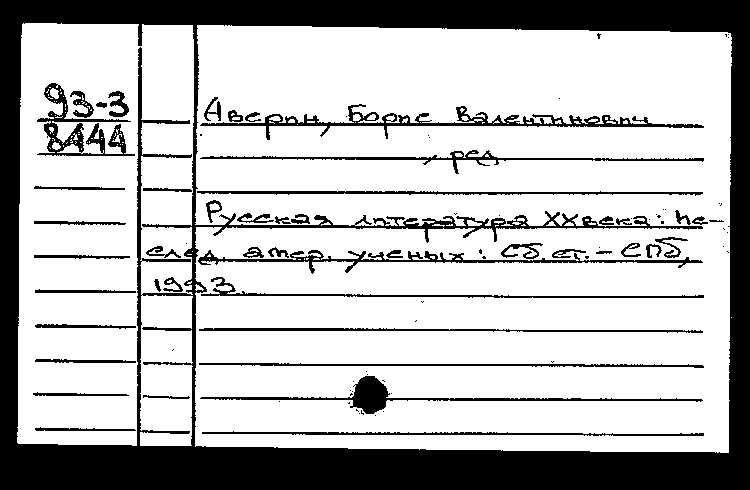 93-3
8444
Аверин, Борис Валентинович
, ред.
Русская литература XX века: Ис-
след. амер. ученых: Сб. ст. - СПб,
1993.